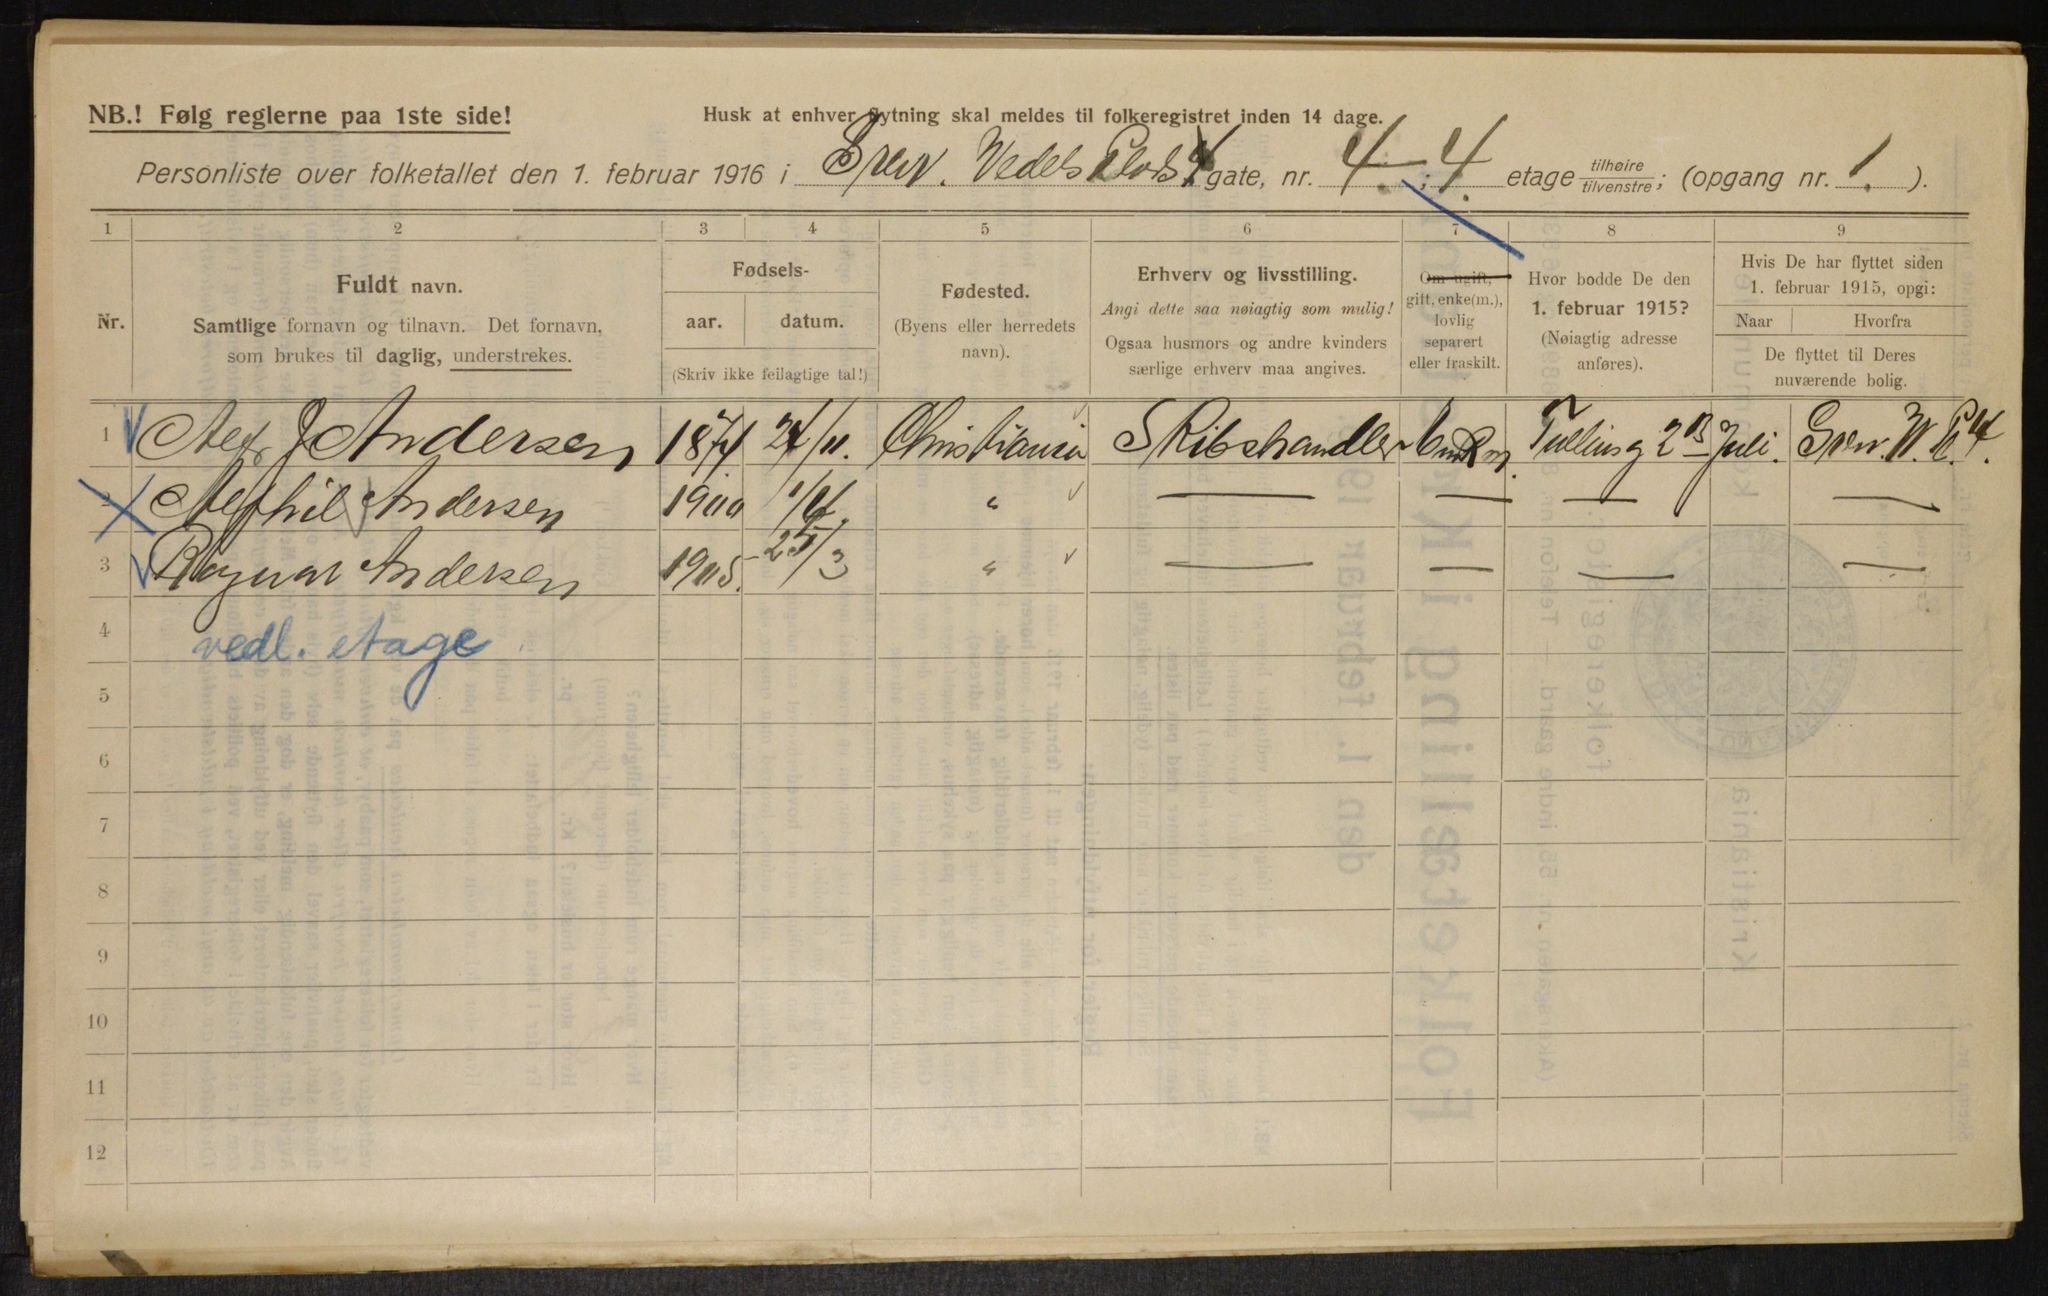 NB.! Følg reglerne paa 1ste side!
Husk at enhver flytning skal meldes til folkeregistret inden 14 dage.
Personliste over folketallet den 1. februar 1916 i Grev. Vedels Plads 4 gate, nr. 4 ; 4. etage tilhøire/tilvenstre; (opgang nr. 1. ).
1 2 3 4 5 6 7 8 9
Nr.
Fuldt navn.
Samtlige fornavn og tilnavn. Det fornavn,
som brukes til daglig, understrekes.
Fødsels-
aar. datum.
(Skriv ikke feilagtige tal!)
Fødested.
(Byens eller herredets
navn).
Erhverv og livsstilling.
Angi dette saa nøiagtig som mulig!
Ogsaa husmors og andre kvinders
særlige erhverv maa angives.
Om ugift,
gift, enke(m.),
lovlig
separert
eller fraskilt.
Hvor bodde De den
1. februar 1915?
(Nøiagtig adresse
anføres).
Hvis De har flyttet siden
1. februar 1915, opgi:
Naar Hvorfra
De flyttet til Deres
nuværende bolig.
1 Alf J Andersen 1874 24/11. Christiania Skibshandler Enkm. Tulling 2B Juli. Grev. W. P. 4.
2 Andersen 1900 " — — — —
3 Ragnar Andersen 1905. 25/3 " — — — —
4 vedl. etage
5
6
7
8
9
10
11
12